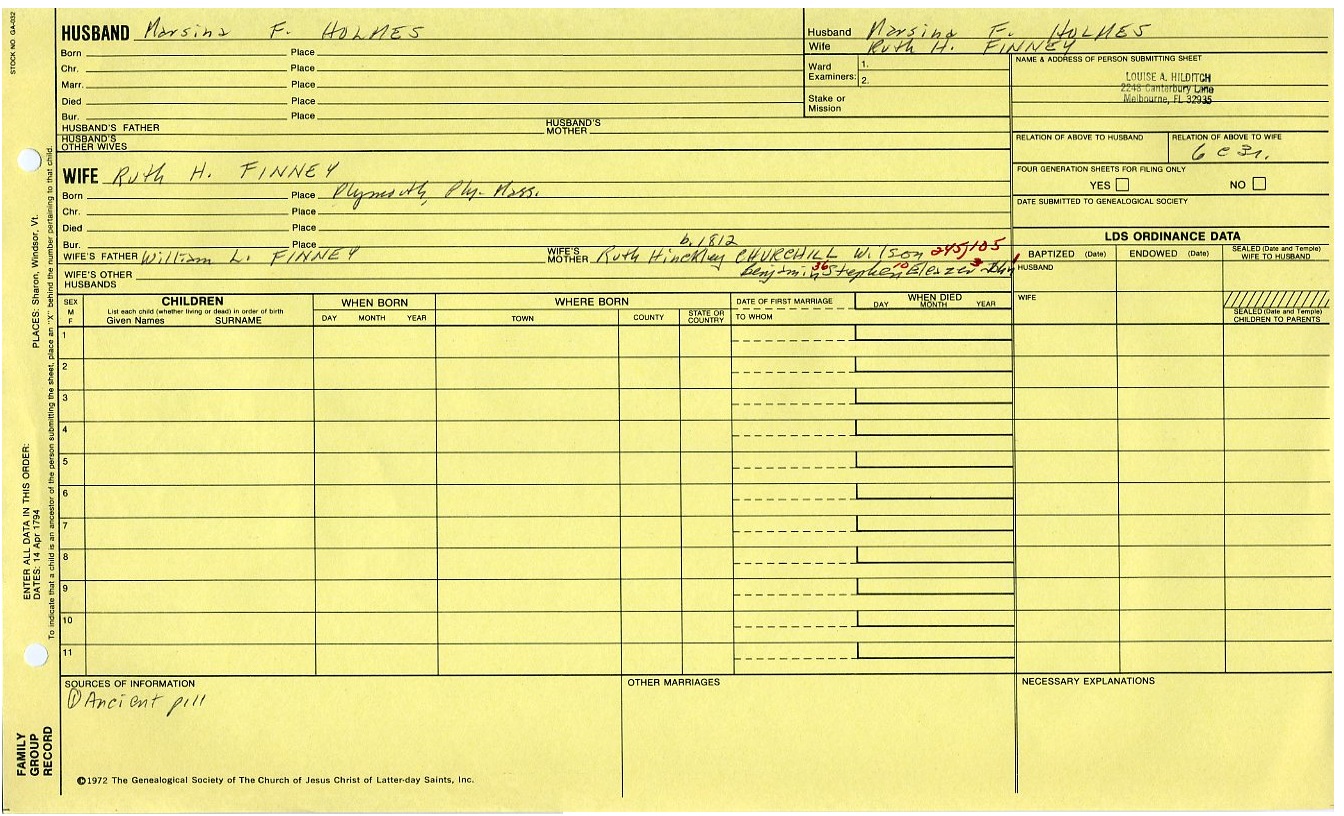 STOCK NO. GA-032
HUSBAND Marsina F. HOLMES
Born Place
Chr. Place
Marr. Place
Died Place
Bur. Place
HUSBAND'S FATHER HUSBAND'S MOTHER
HUSBAND'S OTHER WIVES
Husband Marsina F. HOLMES
Wife Ruth H. FINNEY
Ward Examiners: 1.
2.
Stake or Mission
NAME & ADDRESS OF PERSON SUBMITTING SHEET
LOUISE A. HILDITCH
2248 Canterbury Line
Melbourne, FL 32935
RELATION OF ABOVE TO HUSBAND RELATION OF ABOVE TO WIFE
6 c 3r.
FOUR GENERATION SHEETS FOR FILING ONLY
YES NO
DATE SUBMITTED TO GENEALOGICAL SOCIETY
WIFE Ruth H. FINNEY
Born Place Plymouth, Ply. Mass.
Chr. Place
Died Place
Bur. Place
b. 1812
WIFE'S FATHER William L. FINNEY WIFE'S MOTHER Ruth Hinckley CHURCHILL Wilson 245,105
Benjamin 36 Stephen 10 Eleazer 3 John 1
WIFE'S OTHER HUSBANDS
LDS ORDINANCE DATA
BAPTIZED (Date) ENDOWED (Date) SEALED (Date and Temple) WIFE TO HUSBAND
HUSBAND
WIFE
SEALED (Date and Temple) CHILDREN TO PARENTS
SEX M F
CHILDREN
List each child (whether living or dead) in order of birth
Given Names SURNAME
WHEN BORN
DAY MONTH YEAR
WHERE BORN
TOWN COUNTY STATE OR COUNTRY
DATE OF FIRST MARRIAGE
TO WHOM
WHEN DIED
DAY MONTH YEAR
1
2
3
4
5
6
7
8
9
10
11
SOURCES OF INFORMATION
① Ancient pill
OTHER MARRIAGES
NECESSARY EXPLANATIONS
©1972 The Genealogical Society of The Church of Jesus Christ of Latter-day Saints, Inc.
FAMILY GROUP RECORD
ENTER ALL DATA IN THIS ORDER:
DATES: 14 Apr 1794
PLACES: Sharon, Windsor, Vt.
To indicate that a child is an ancestor of the person submitting the sheet, place an "X" behind the number pertaining to that child.